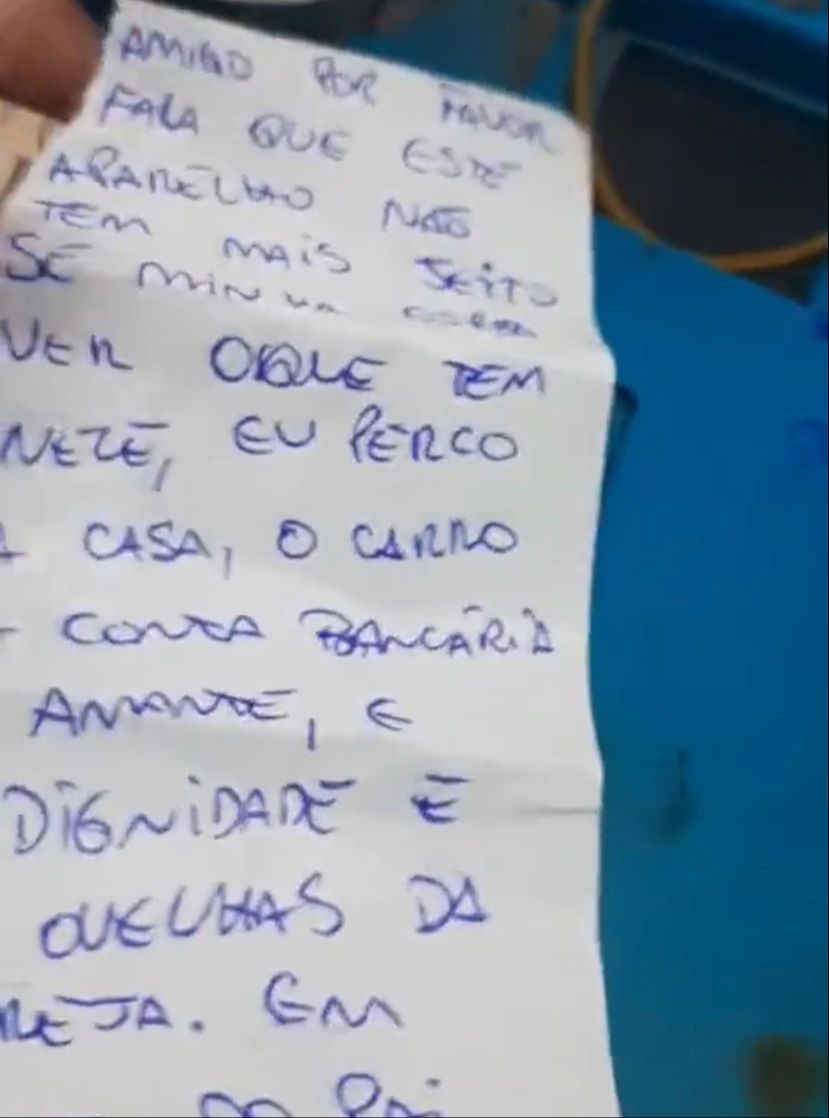 AMIGO POR FAVOR
FALA QUE ESTE
APARELHO NÃO
TEM MAIS JEITO
SE MINHA
VER OQUE TEM
NEZE, EU PERCO
A CASA, O CARRO
CONTA BANCÁRIA
AMANTE, E
DIGNIDADE E
OVELHAS DA
REJA. EM